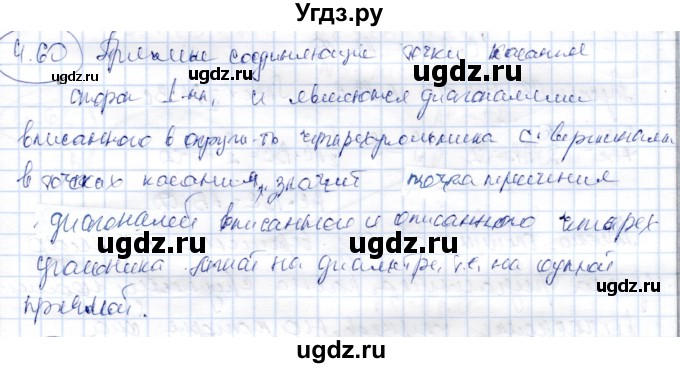 Угдз.ру
4.60 Прямые соединяющие точки касания
ugdz.ru ugdz.ru ugdz.ru
сторон и являются диагоналями
вписанного в четырехугольника с вершинами
в точках касания, значит точка пересечения
диагоналей и описанного четырех
ugdz.ru ugdz.ru
угольника на диаметре, т.е. на одной
прямой.
ugdz.ru ugdz.ru
ugdz.ru